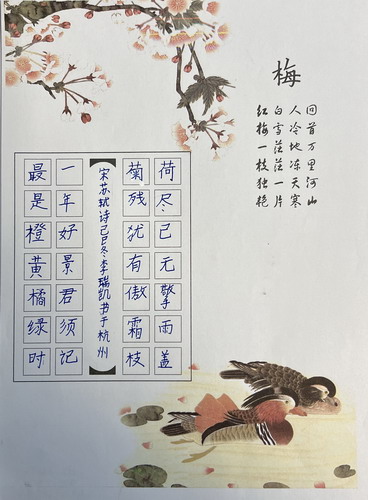 梅
回首万里河山
人冷地冻天寒
白雪茫茫一片
红梅一枝独艳
荷尽已无擎雨盖
菊残犹有傲霜枝
宋苏轼诗己巳冬李瑞凯书于杭州
一年好景君须记
最是橙黄橘绿时